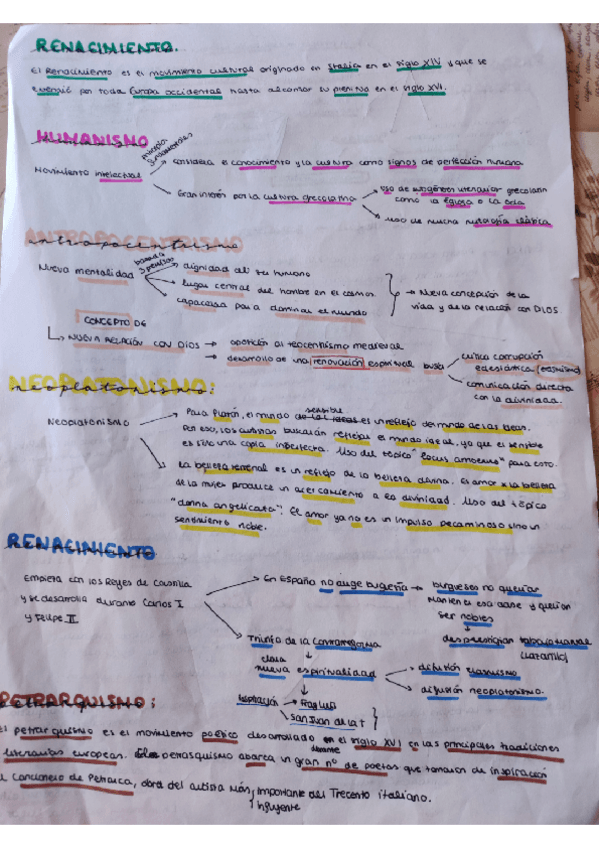 RENACIMIENTO.
El Renacimiento es el movimiento cultural originado en Italia en el siglo XIV y que se
extendió por toda Europa occidental hasta alcanzar su plenitud en el siglo XVI.
HUMANISMO
Movimiento intelectual
principios fundamentales
considera el conocimiento y la cultura como signos de perfección humana
Gran interés por la cultura grecolatina
uso de subgéneros literarios grecolatin
como la égloga o la oda
uso de mucha mitología clásica
ANTROPOCENTRISMO
Nueva mentalidad
basada 3 premisas
dignidad al ser humano
lugar central del hombre en el cosmos
capacidad para dominar el mundo
Nueva concepción de la
vida y de la relación con DIOS.
CONCEPTO DE
NUEVA RELACIÓN CON DIOS → oposición al teocentrismo medieval
→ desarrollo de una renovación espiritual busca
critica corrupción
eclesiástica (erasmismo)
comunicación directa
con la divinidad.
NEOPLATONISMO:
Neoplatonismo
Para Platón, el mundo sensible es un reflejo del mundo de las ideas.
Por eso, los artistas buscarán reflejar el mundo ideal, ya que el sensible
es sólo una copia imperfecta. Uso del tópico "locus amoenus" para esto.
La belleza terrenal es un reflejo de la belleza divina. El amor a la belleza
de la mujer produce un acercamiento a la divinidad. Uso del tópico
"donna angelicata". El amor ya no es un impulso pecaminoso sino un
sentimiento noble.
RENACIMIENTO
Empieza con los Reyes de Castilla
y se desarrolla durante Carlos I
y Felipe II.
En España no auge burguesía → burgueses no querían
mantener esa clase y querían
ser nobles
desprestigian trabajo manual
(Lazarillo)
Triunfo de la Contrarreforma
clara
nueva espiritualidad
difusión erasmismo
difusión neoplatonismo.
inspiración → Fray Luis
San Juan de la †
PETRARQUISMO:
El petrarquismo es el movimiento poético desarrollado en el siglo XVI en las principales tradiciones
literarias europeas. El petrarquismo abarca un gran nº de poetas que tomaron de inspiración
el Cancionero de Petrarca, obra del artista más importante del Trecento italiano.
influyente